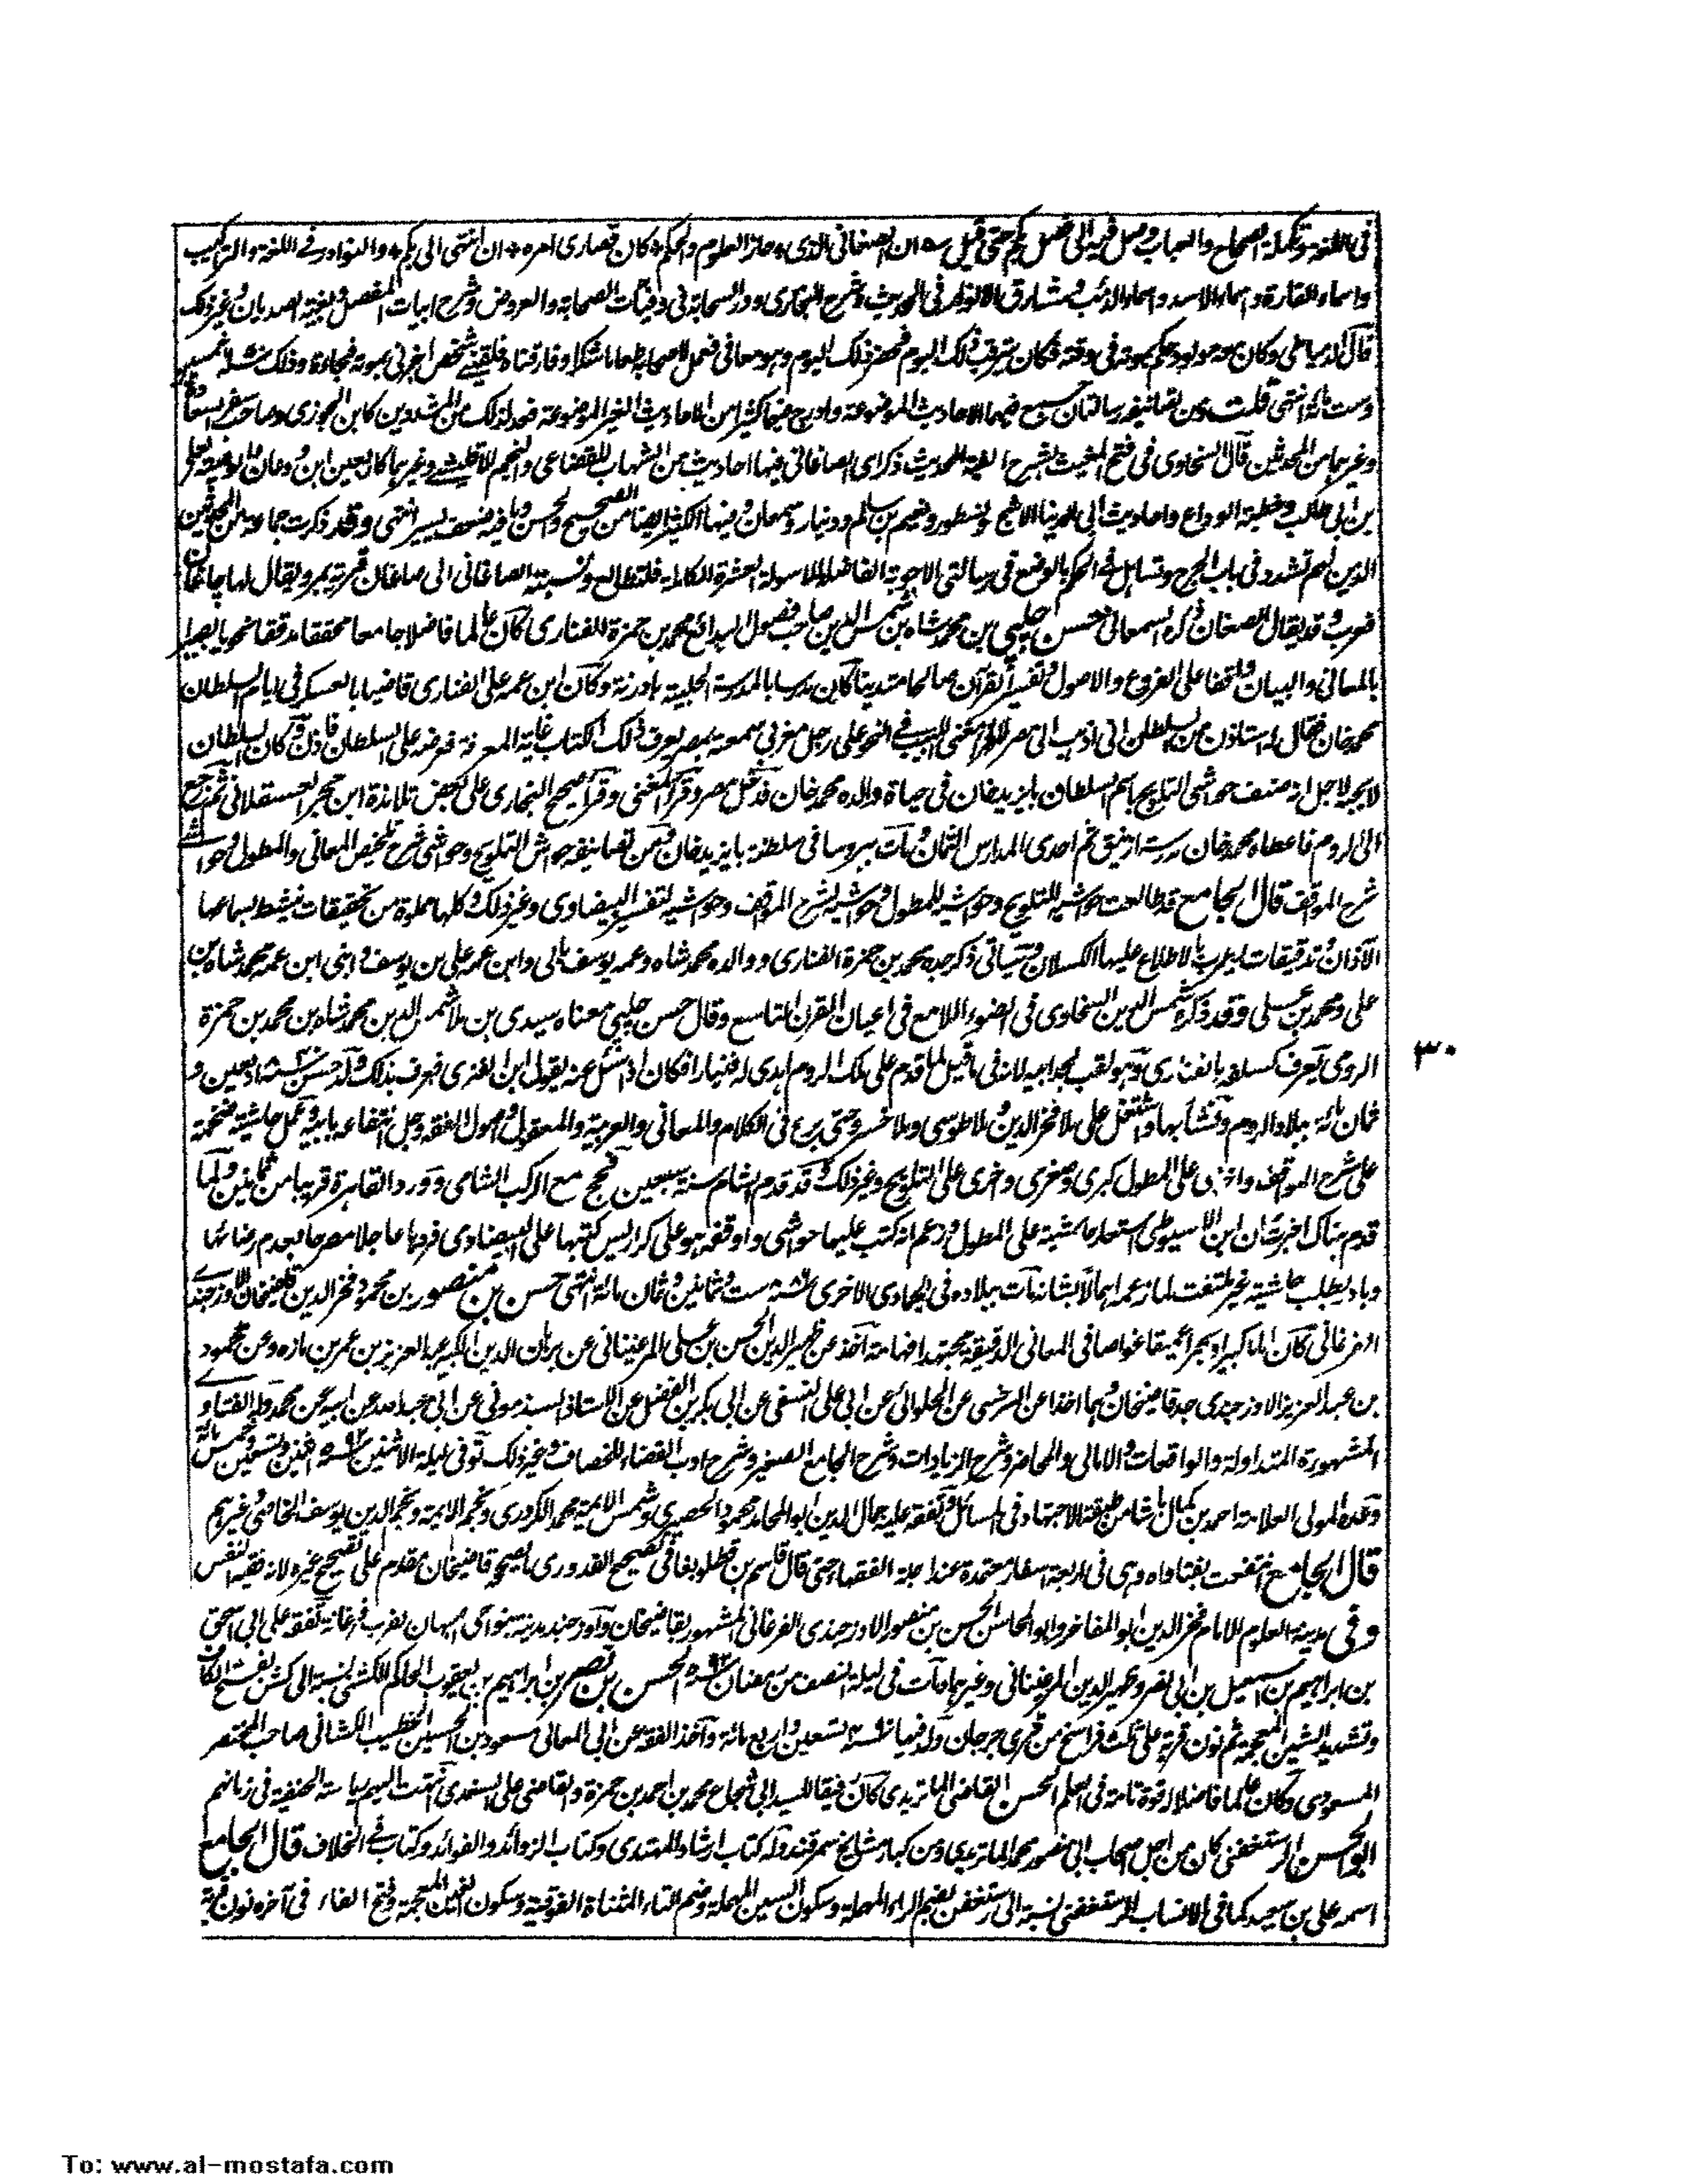 في اللغة وتكملة الصحاح والعباب وصل فيه الى فصل بكم حتى قيل ان الصغاني الذي * حاز العلوم والحكم * كان قصارى امره * ان انتهى الى بكم * والنوادر في اللغة والتراكيب
واسماء الفارة واسماء الاسد واسماء الذئب ومشارق الانوار في الحديث وشرح البخاري ودر السحابة في وفيات الصحابة والعروض وشرح ابيات المفصل وبغية الصديان وغير ذلك
قال الدمياطي وكان معه مولود حكم بموته في وقته فكان يترقب ذلك اليوم فحضر ذلك اليوم وهو معافى فعمل لاصحابه طعاما شكرا وفارقناه فلقيني شخص اخبرني بموته فجاءة وذلك سنة خمسين
وست مائة انتهى قلت ومن تصانيفه رسالتان جمع فيهما الاحاديث الموضوعة وادرج فيهما كثيرا من الاحاديث الغير الموضوعة فعد لذلك من المشددين كابن الجوزي وصاحب سفر السعادة
وغيرهما من المحدثين قال السخاوي في فتح المغيث بشرح الفية الحديث ذكر اى الصاغاني فيها احاديث من الشهاب للقضاعي والنجم للاقليشي وغيرهما كاربعين ابن ودعان والوصية لعلي
بن ابي طالب وخطبة الوداع واحاديث ابي الدنيا الاشج ونسطور ونعيم بن سالم ودينار وسمعان وفيها الكثير ايضا من الصحيح والحسن وما فيه ضعف يسير انتهى وقد ذكرت جماعة من المحدثين
الذين لهم تشدد في باب الجرح وتساهل في الحكم بالوضع في رسالتي الاجوبة الفاضلة للاسولة العشرة الكاملة فلتطالع ونسبة الصاغاني الى صاغان قرية بمرو يقال لها چاغان
فعرب وقد يقال الصغان ذكره السمعاني حسن چلپي بن محمد شاه بن شمس الدين صاحب فصول البدائع محمد بن حمزة الفناري كان عالما فاضلا جامعا محققا مدققا نحويا بصيرا
بالمعاني والبيان ومطلعا على الفروع والاصول وتفسير القرآن صالحا متدينا كان مدرسا بالمدرسة الحلبية بادرنة وكان ابن عمه علي الفناري قاضيا بالعسكر في ايام السلطان
محمد خان فقال له استاذن من السلطان اني اذهب الى مصر لقراءة مغني اللبيب في النحو على رجل مغربي سمعته بمصر يعرف ذلك الكتاب غاية المعرفة فعرضه على السلطان فاذن وكان السلطان
لا يحبه لاجل انه صنف حواشي التلويح باسم السلطان بايزيد خان في حياة والده محمد خان فدخل مصر وقرأ المغني وقرأ صحيح البخاري على بعض تلامذة ابن حجر العسقلاني ثم رجع
الى الروم فاعطاه محمد خان مدرسة ازنيق ثم احدى المدارس الثمان ومات ببروسا في سلطنة بايزيد خان ومن تصانيفه حواشي التلويح وحواشي شرح تلخيص المعاني والمطول وحواشي
شرح المواقف قال الجامع قد طالعت حواشيه للتلويح وحواشيه للمطول وحواشيه لشرح المواقف وحواشيه لتفسير البيضاوي وغير ذلك وكلها مملوة من تحقيقات تنشط بسماعها
الآذان وتدقيقات يطرب بالاطلاع عليها الكسلان وسيأتي ذكر جده محمد بن حمزة الفناري ووالده محمد شاه وعمه يوسف بالي وابن عمه علي بن يوسف وابني ابن عمه محمد شاه بن
علي ومحمد بن علي وقد ذكره شمس الدين السخاوي في الضوء اللامع في اعيان القرن التاسع وقال حسن چلپي معناه سيدي بن ملا شمس الدين محمد شاه بن محمد بن حمزة
الرومي يعرف كسلفه بالفناري وهو لقب لجد ابيه لانه في ما قيل لما قدم على ملك الروم اهدى له فنيارا فكان اذا سئل عنه يقول اين الفنري فعرف بذلك ولد حسن سنة ٨٤٠ اربعين و
ثمان مائة ببلاد الروم ونشأ بها واشتغل على ملا فخر الدين وملا طوسي وملا خسرو حتى برع في الكلام والمعاني والعربية والمعقول واصول الفقه وجل انتفاعه بابيه وعمل حاشية ضخمة
على شرح المواقف واخرى على المطول كبرى وصغرى واخرى على التلويح وغير ذلك وقد قدم الشام سنة سبعين فحج مع الركب الشامي وورد القاهرة قريبا من ثمانين ولما
قدم هناك اخبرت ان ابن الاسيوطي استعار حاشيته على المطول وزعم انه كتب عليها حواشي واوقفه هو على كراريس كتبها على البيضاوي فردها عاجلا مصرحا بعدم رضائها
وبادر بطلب حاشيته غير ملتفت لما زعمه اهمالا بشانه مات ببلاده في الجمادى الاخرى سنة ٨٨٦ ست وثمانين وثمان مائة انتهى حسن بن منصور بن محمود فخر الدين قاضيخان الاوزجندي
الفرغاني كان اماما كبيرا وبحرا عميقا غواصا في المعاني الدقيقة مجتهدا فهامة اخذ عن ظهير الدين الحسن بن علي المرغيناني عن برهان الدين الكبير عبد العزيز بن عمر بن مازه وعن محمود
بن عبد العزيز الاوزجندي جد قاضيخان وهما اخذا عن السرخسي عن الحلوائي عن ابي علي النسفي عن ابي بكر بن الفضل عن الاستاذ السبذموني عن ابي عبد الله عن ابيه عن محمد وله الفتاوى
المشهورة المتداولة والواقعات والامالي والمحاضر وشرح الزيادات وشرح الجامع الصغير وشرح ادب القضاء للخصاف وغير ذلك توفي ليلة الاثنين سنة ٥٩٢ اثنين وتسعين وخمس مائة
وعده المولى العلامة احمد بن كمال باشا من طبقة الاجتهاد في المسائل وتفقه عليه جمال الدين ابو المحامد محمود الحصيري وشمس الايمة محمد الكردري ونجم الايمة ونجم الدين يوسف الخاصي وغيرهم
قال الجامع انتفعت بفتاواه وهي في اربعة اسفار معتمدة عند اجلة الفقهاء حتى قال قاسم بن قطلوبغا في تصحيح القدوري ما يصححه قاضيخان مقدم على تصحيح غيره لانه فقيه النفس
وفي مدينة العلوم الامام فخر الدين ابو المفاخر وابو المحاسن الحسن بن منصور الاوزجندي الفرغاني المشهور بقاضيخان واوزجند مدينة بنواحي اصبهان بقرب فرغانة تفقه على ابي اسحق
بن ابراهيم بن اسمعيل بن ابي نصر وظهير الدين المرغيناني وغيرهما مات في ليلة النصف من رمضان سنة ٥٩٢ الحسن بن نصر بن ابراهيم بن يعقوب الحاكم الكشني نسبة الى كشن بفتح الكاف
وتشديد الشين المعجمة ثم نون قرية على ثلث فراسخ من قرى جرجان ولد فيها سنة ٤٩٠ تسعين واربع مائة واخذ الفقه عن ابي المعالي مسعود بن الحسين الخطيب الكشاني صاحب المختصر
المسعودي وكان عالما فاضلا له قوة تامة في العلم الحسن القاضي الماتريدي كان رفيقا للسيد ابي شجاع محمد بن احمد بن حمزة والقاضي علي السغدي انتهت اليهم رياسة الحنفية في زمانهم
ابو الحسن الرستغفني كان من اجل اصحاب ابي منصور محمد الماتريدي ومن كبار مشايخ سمرقند وله كتاب ارشاد المهتدي وكتاب الزوائد والفوائد وكتاب في الخلاف قال الجامع
اسمه علي بن سعيد كما في الانساب للرستغفني نسبة الى رستغفن بضم الراء المهملة وسكون السين المهملة وضم التاء المثناة الفوقية وسكون الغين المعجمة وفتح الفاء في آخره نون قرية
٣٠
To: www.al-mostafa.com